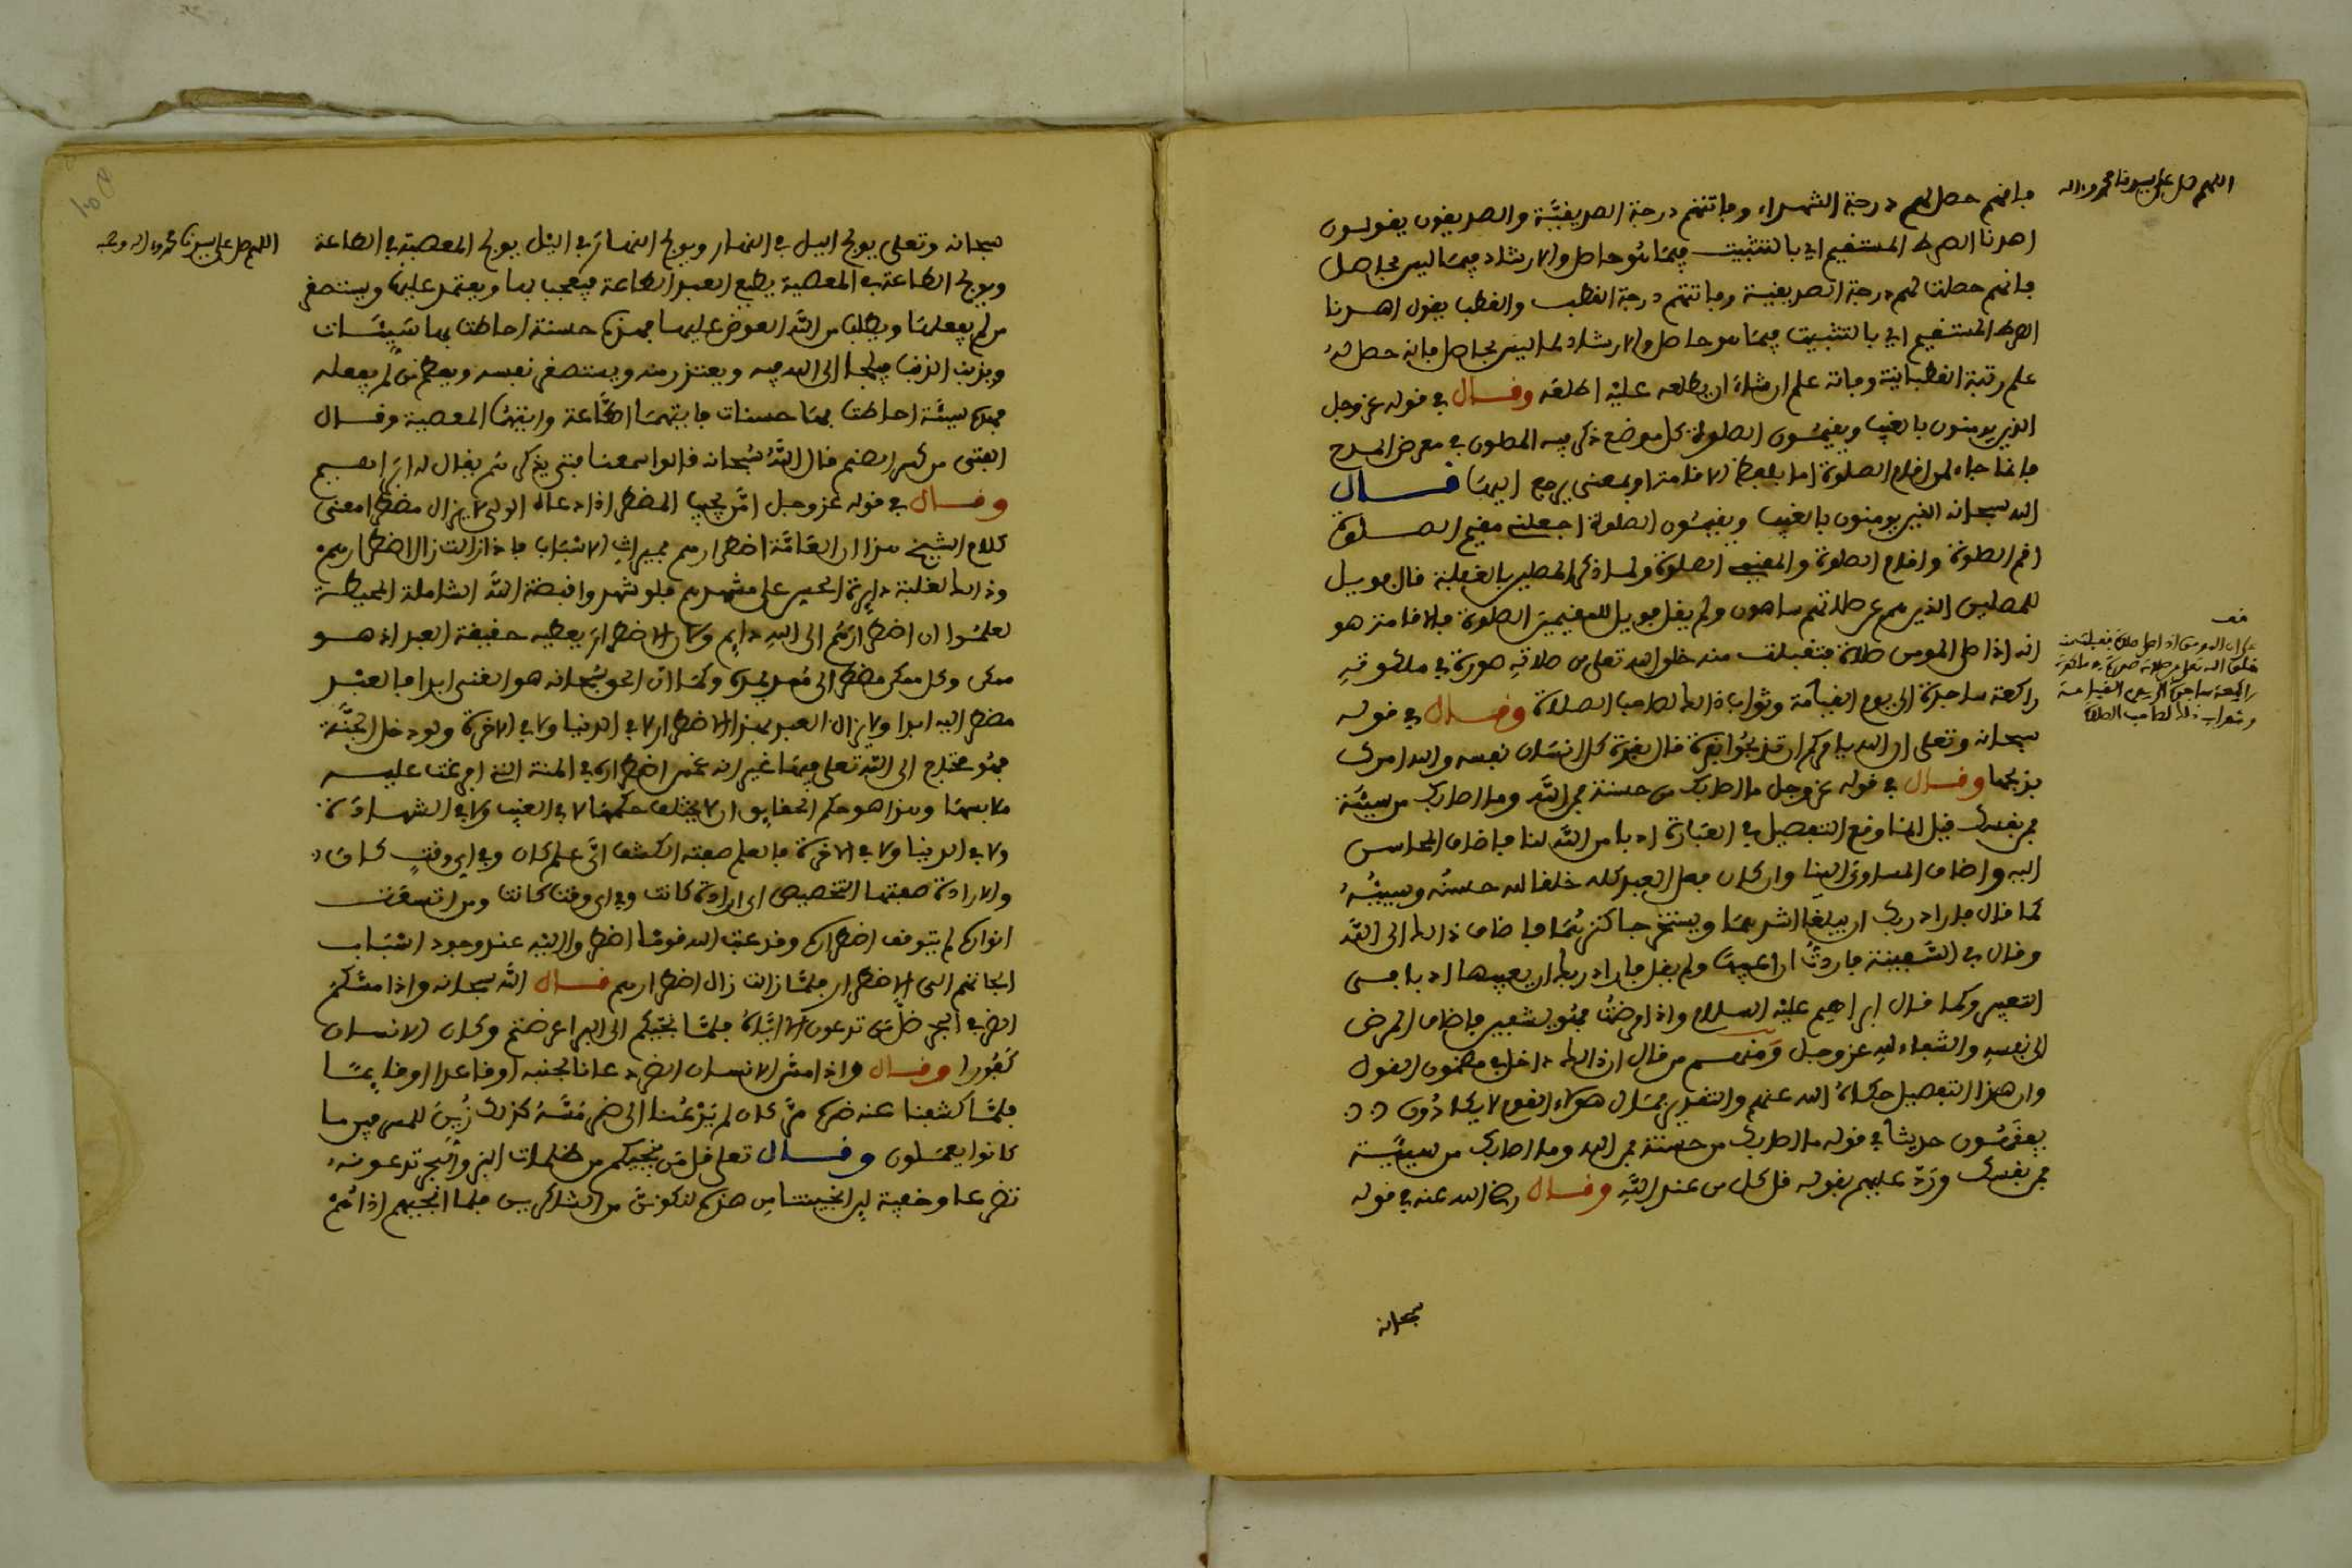 اللهم صل على سيدنا محمد واله
فانهم حصل لهم درجة الشهداء وفاتتهم درجة الصديقيَّة والصديقون يقولون
اهدنا الصراط المستقيم اي بالتثبيت فيما هُو حاصل والارشاد فيما ليس بحاصل
فانهم حصلت لهم درجة الصديقية وفاتتهم درجة القطب والقطب يقول اهدنا
الصراط المستقيم اي بالتثبيت فيما هو حاصل والارشاد لما ليس بحاصل فانه حصل لهُ
علم رتبة القطبانية وفاته علم ان شاءَ ان يطلعه عليْه اطلعَه وقال في قوله عز وجل
الذين يومنون بالغيب ويقيمُون الصلوة كل موضع ذكر فيه المصلون في معرض المدح
فانما جاء لمن اقام الصلوة اما بلفظ الاقامة او بمعنى يرجع اليها قال
الله سبحانه الذين يومنون بالغيب ويقيمُون الصلوة اجعلني مقيم الصلوة
اقم الصلوة واقام الصلوة والمقيمى الصلوة ولما ذكر المصلين بالغفلة قال فويل
للمصلين الذين هم عن صلاتهم ساهون ولم يقل فويل للمقيمين الصلوة فالاقامة هو
انه اذا صلى المومن صلاة فتقبلت منه خلق الله تعلى من صلاتِه صورة في ملكوتهِ
راكعة ساجدة الى يوم القيامة وثواب ذالك لصاحب الصلاة وقال في قوله
سبحانه وتعلى ان الله يامركم ان تذبحُوا بقرة قال بقرة كل انسَان نفسه والله امرك
بذبحها وقال في قوله عز وجل ما اصابك من حسنة فمن اللَّه وما اصابك من سيئَة
فمن نفسك قيل انما وقع التفصيل في العبَارة ادبا من اللَّه لنا فاضاف المحاسن
اليه واضاف المساوئ الينا وان كان فعل العبد كله خلقا لله حسنُه وسيئُهُ
كما قال فاراد ربك ان يبلغا اشدهما ويستخرجا كنزهُما فاضاف ذالك الى اللَّه
وقال في السَّفينة فاردتُ ان اعيبها ولم يقل فاراد ربك ان يعيبها ادبا في
التعبير وكما قال ابراهيم عليْه السلام واذا مرضتُ فهُو يشفين فاضاف المرض
الى نفسِه والشفاء لله عز وجل ومنهم من قال ان ذالك داخل في مضمون القول
وان هذا التفصيل حكاهُ الله عنهم والتقدير فمَال هؤلاء القوم لا يكادُون
يفقهُون حديثا في قوله ما اصابك من حسنة فمن الله وما اصابك من سيئة
فمن نفسك وردَّ عليهم بقوله قل كل من عند اللَّهِ وقال رضي الله عنه في قوله
سبحانه
قف
على ان المومن اذا صلى صلاة تقبلت منه
خلق الله تعلى من صلاته صورة في ملكوته
راكعة ساجدة الى يوم القيامة
وثواب ذالك لصاحب الصلاة
اللهم صل على سيدنا محمد واله وصحبه
سبحانه وتعلى يولج اليل في النهار ويولج النهارَ في اليْل يولج المعصية في الطاعة
ويولج الطاعة في المعصية يطيع العبد الطاعة فيعجب بها ويعتمد عليها ويستصغر
من لم يفعلها ويطلب من اللَّه العوض عليها فهذه حسنة احاطت بها سَيِئَات
ويذنب الذنب فيلجأ الى الله فيه ويعتذر منه ويستصغر نفسه ويعظم من لم يفعله
فهذه سيئَة احاطت بها حسنات فايتهمَا الطَّاعة وايتهُما المعصية وقال
الفتى من كسر الصنم قال اللَّهُ سُبحانه قالوا سمعنا فتى يذكرهم يقال له ابراهيم
وقال في قوله عز وجل امَّن يجيب المضطر اذا دعاه الولي لا يزال مضطرا معنى
كلام الشيخ هذا ان العَامَّة اضطرارهم بمثيراتِ الاسْبَاب فاذا زالت زال اضطرارهمْ
وذالك لغلبة دايرة الحس على مشهدهم فلو شهدوا قبضة اللَّه الشاملة المحيطة
لعلمُوا ان اضطرارَهُم الى اللهِ دايم ولان الاضطرارَ يعطيه حقيقة العبد اذ هو
ممكن وكل ممكن مضطر الى مُمد يمده وكما ان الحق سُبحانه هو الغنى ابدا فالعبْد
مضطر اليه ابدا ولا يزال العبد بهذا الاضطرار لا في الدنيا ولا في الاخرة ولو دخل الجنَّة
فهُو محتاج الى اللَّه تعلى فيهَا غير انه غمر اضطراره في المنة التي افرغت عليه
ملابسهَا وهذا هو حكم الحقايق ان لا يختلف حكمهَا لا في الغيب ولا في الشهادَة
ولا في الدنيا ولا في الاخرة فالعلم صفته الكشف ايَّ علم كان وفي اي وقتٍ كان
والارادة صفتها التخصيص اي ارادة كانت وفي اي وقت كانت ومن اتسعَت
انواره لم يتوقف اضطراره وقد عتب الله قومًا اضطروا اليْه عند وجود اسْبَاب
الجاتهم الى الاضطرار فلمَّا زالت زال اضطرارهم قال اللَّه سبحانه واذا مسَّكمُ
الضر في البحر ضلَّ مَن تدعون الا ايَّاهُ فلمَّا نجَّيكم الى البر اعرضتم وكان الانسان
كفُورا وقال واذا مسَّ الانسان الضر دعانا لجنبه اوقاعدا اوقايمًا
فلمَّا كشفنا عنه ضره مرَّ كان لم يَدْعُنا الى ضر مَسَّهُ كذلك زُيِنَ للمسرفين ما
كانوا يعملون وقال تعلى قل مَن ينجيكم من ظلمات البر والبحر تدعونهُ
تضرعا وخفية لين انجيتنا من هذه لنكوننَّ من الشاكرين فلما انجيهم اذا هُمْ